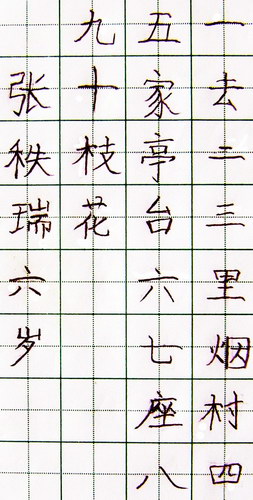 一去二三里烟村四
五家亭台六七座八
九十枝花
张秩瑞六岁